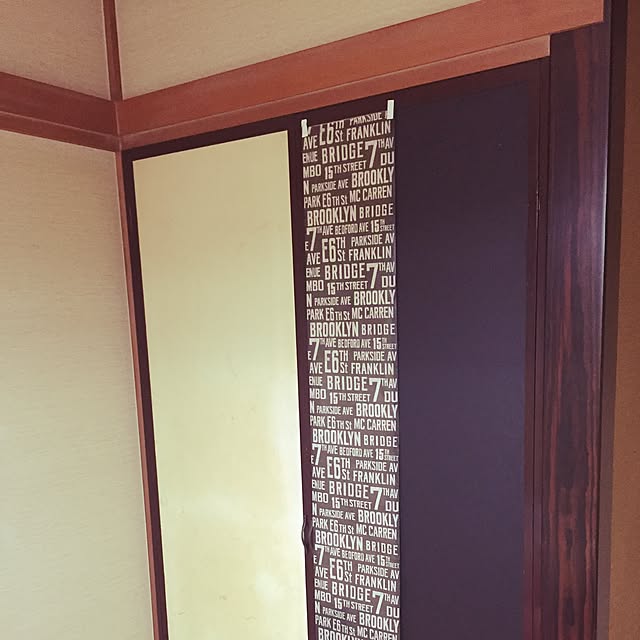 PARKSIDE
AVE E6TH St FRANKLIN
ENUE BRIDGE 7TH AV
MBO 15TH STREET DU
N PARKSIDE AVE BROOKLY
PARK E6TH St MC CARREN
BROOKLYN BRIDGE
E 7TH AVE BEDFORD AVE 15TH STREET
AVE E6TH St PARKSIDE AV FRANKLIN
ENUE BRIDGE 7TH AV
MBO 15TH STREET DU
N PARKSIDE AVE BROOKLY
PARK E6TH St MC CARREN
BROOKLYN BRIDGE
E 7TH AVE BEDFORD AVE 15TH STREET
AVE E6TH St PARKSIDE AV FRANKLIN
ENUE BRIDGE 7TH AV
MBO 15TH STREET DU
N PARKSIDE AVE BROOKLY
PARK E6TH St MC CARREN
BROOKLYN BRIDGE
E 7TH AVE BEDFORD AVE 15TH STREET
AVE E6TH St PARKSIDE AV FRANKLIN
ENUE BRIDGE 7TH AV
MBO 15TH STREET DU
N PARKSIDE AVE BROOKLY
PARK E6TH St MC CARREN
BROOKLYN BRIDGE
E 7TH AVE BEDFORD AVE 15TH STREET
AVE E6TH St PARKSIDE AV FRANKLIN
ENUE BRIDGE 7TH AV
MBO 15TH STREET DU
N PARKSIDE AVE BROOKLY
PARK E6TH St MC CARREN
BROOKLYN BRIDGE